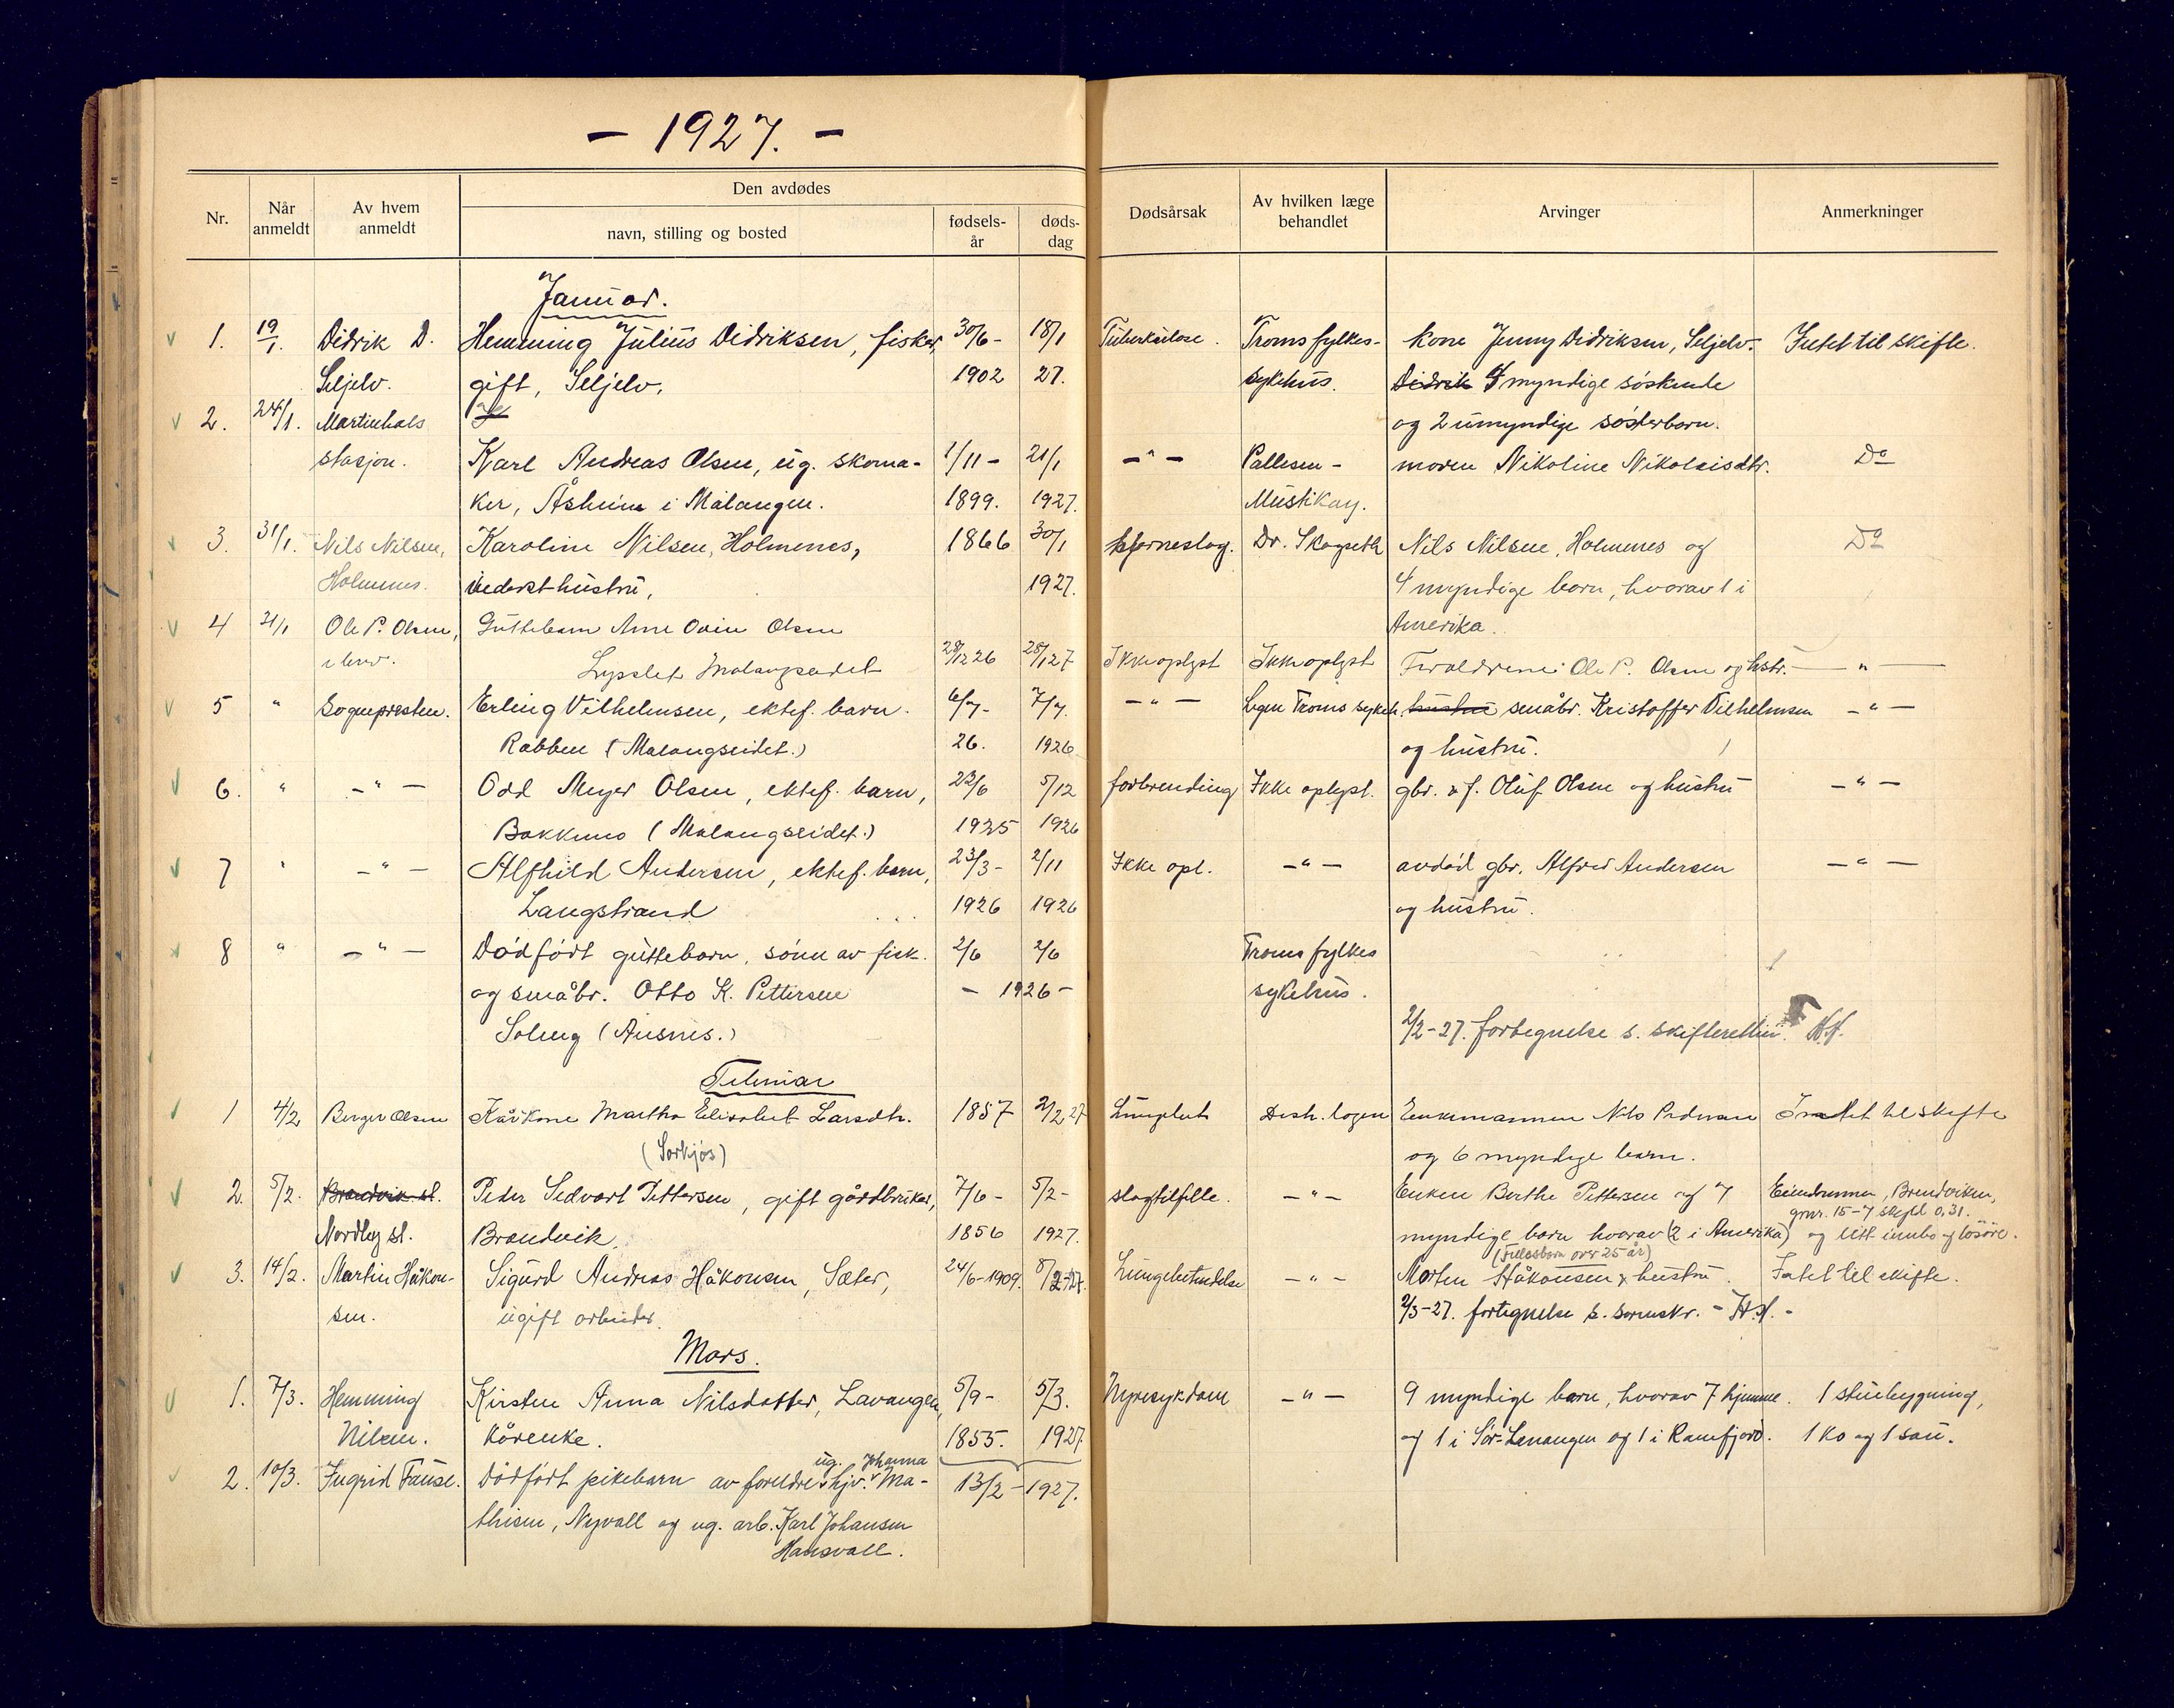 - 1927. -
Nr.
Når anmeldt
Av hvem anmeldt
Den avdødes
navn, stilling og bosted
fødsels-år
døds-dag
Dødsårsak
Av hvilken læge behandlet
Arvinger
Anmerkninger
Januar.
1. 19/1. Didrik D. Hemming Julius Didriksen, fisker, 30/6- 18/1 Tuberkulose. Troms fylkes- kone Jenny Didriksen, Seljelv. Intet til skifte.
Seljelv. gift, Seljelv, 1902 27. sykehus. Didrik 4 myndige søskende
2. 24/1. Martinhals og 2 umyndige søsterbarn.
stasjon. Karl Andreas Olsen, ug. skoma- 1/11- 21/1 -"- Pallesen- moren Nikoline Nikolaisdtr. Do
ker, Åsheim i Malangen. 1899. 1927. Mustikay.
3. 31/1. Nils Nilsen, Karoline Nilsen, Holmenes, 1866 30/1 hjerneslag. Dr. Skogseth Nils Nilsen, Holmenes og Do
Holmenes. hustru, 1927. 4 myndige barn, hvorav 1 i
4 31/1 Ole P. Olsen, Guttebarn Arne Odin Olsen Amerika.
28/12 26 28/1 27 Ikke oplyst Ikke oplyst Foreldrene: Ole P. Olsen og hstr. -"-
5 " Sogneprsten. Erling Vilhelmsen, ektef. barn. 6/7- 7/7. -"- Legen Troms sykeh. hustru småbr. Kristoffer Vilhelmsen -"-
Rabben (Malangseidet.) 26. 1926 og hustru.
6. " -"- Odd Meyer Olsen, ektef. barn, 22/6 5/12 forbrending Ikke oplyst. gbr. & f. Oluf Olsen og hustru -"-
Bakkemo (Malangseidet.) 1925 1926
7 " -"- Alfhild Andersen, ektef. barn, 23/3- 2/11 Ikke opl. -"- avdød gbr. Alfred Andersen -"-
Langstrand 1926 1926 og hustru.
8 " -"- Dødfødt guttebarn, sønn av fisk. 2/6 2/6 Troms fylkes
og småbr. Otto K. Pettersen - 1926 - sykehus.
(Ausnes.) 2/2-27. fortegnelse s. skifteretten.
Februar
1 4/2 Berger Olsen Kårkone Martha Elisabet Larsdtr. 1857 2/2 27 Distr. legen Enkemannen Nils Pedersen Intet til skifte
(Sørkjos) og 6 myndige barn.
2. 5/2. Brandvik st. Peder Sedvart Pettersen, gift gårdbruker, 7/6- 5/2- slagtilfelle. -"- Enken Berthe Pettersen og 7 Eiendommen, Brendviken,
gnr. 15-7 skyld 0,31.
Nordby st. Brandvik. 1856 1927. myndige barn hvorav (2 i Amerika) og litt innbo og løsøre.
(Fellesbarn over 25 år)
3. 14/2. Martin Håkon- Sigurd Andreas Håkonsen, Sæter, 24/6-1909. 8/2-27. Lungebetendelse -"- Morten Håkonsen & hustru. Intet til skifte.
sen. ugift arbeider. 2/3-27. fortegnelse s. sorenskr. -
Mars.
1. 7/3. Hemming Kirsten Anna Nilsdatter, Lavangen, 5/9- 5/3. Nyresykdom -"- 9 myndige barn, hvorav 7 hjemme. 1 stuebygning,
Nilsen. kårenke. 1855. 1927. og 1 i Sør-Lenangen og 1 i Ramfjord. 1 ko og 1 sau.
ug. Johanna
2. 10/3. Ingrid Fause. Dødfødt pikebarn av foreldre: hjv. Ma- 13/2-1927.
thisen, Nyvoll og ug. arb. Karl Johansen
Hansvoll.